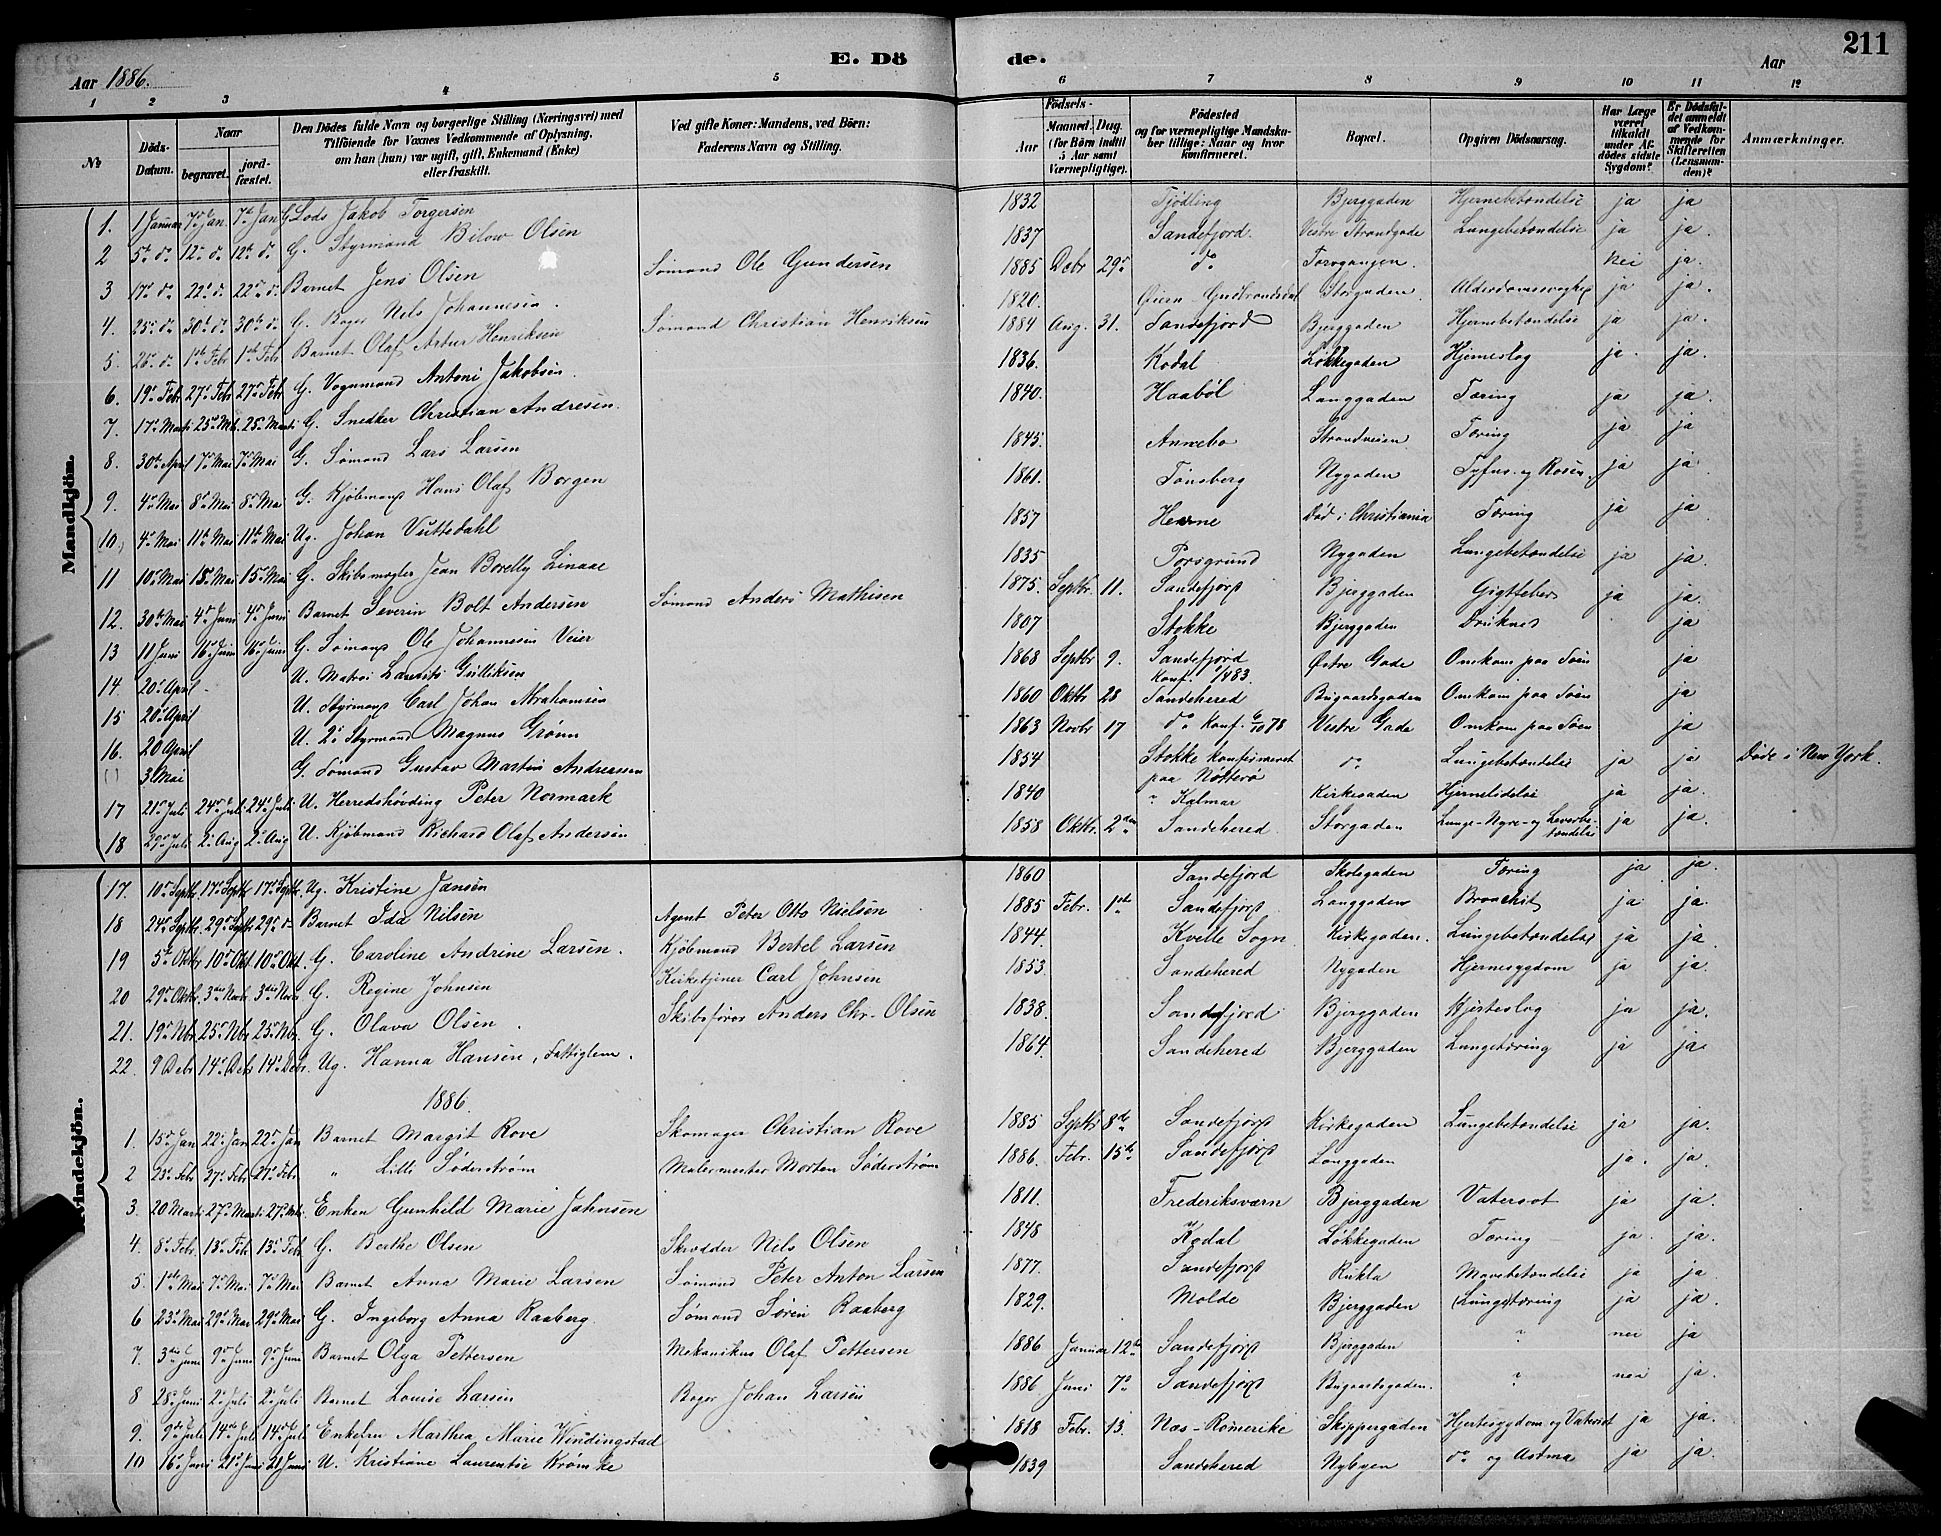 E. Dö de. 211
Aar 1886. Aar
1 2 3 4 5 6 7 8 9 10 11 12
№ Döds-Datum. Naar begravet. jordfæstet. Den Dödes fulde Navn og borgerlige Stilling (Næringsvei) med Tilföiende for Voxnes Vedkommende af Oplysning, om han (hun) var ugift, gift, Enkemand (Enke) eller fraskilt. Ved gifte Koner: Mandens, ved Börn: Faderens Navn og Stilling. Födsels- Aar Maaned. Dag. (for Börn indtil 5 Aar samt Værnepligtige). Födested og for værnepligtige Mandskaber tillige: Naar og hvor konfirmeret. Bopæl. Opgiven Dödsaarsag. Har Læge været tilkaldt under Afdödes sidste Sygdom? Er Dödsfaldet anmeldt af Vedkommende for Skifteretten (Lensmanden)? Anmærkninger.
Mandkjön.
1. 1 Januar 7de Jan. 7de Jan G. Lods Jakob Torgersen 1832 Tjödling Bjerggaden Hjernebetændelse ja ja
2 5te do 12te do 12te do G. Styrmand Bilow Olsen 1837 Sandefjord. Vestre Strandgade Lungebetændelse ja ja.
3 17de do 22de do 22de do Barnet Jens Olsen Sømand Ole Gundersen 1885 Decbr 29de do Torvgangen. Nei ja.
4. 25de do 30te do 30te do G. Bager Nils Johannesen. 1820. Øiern-Gudbrandsdal Storgaden. Alderdomssvaghed ja ja.
5. 26de do 1ste Febr 1ste Febr Barnet Olaf Artur Henriksen Sømand Christian Henriksen 1884 Aug. 31. Sandefjord Bjerggaden Hjernebetændelse ja ja.
6. 19de Febr 27de Febr 27de Febr G. Vognmand Antoni Jakobsen. 1836. Kodal Løkkegaden Hjerneslag ja. ja.
7. 17de Marts 25de Mts. 25de Marts G. Snedker Christian Andresen. 1840. Haabøl Langgaden Tæring ja ja.
8. 30te April 7de Mai 7de Mai G. Sømand Lars Larsen 1845. Annebo Strandveien Tæring ja ja
9. 4de Mai 8de Mai 8de Mai G. Kjøbmand Hans Olaf Borgen 1861. Tønsberg Nygaden Tyfus og Rosen. ja ja.
10 4de Mai 11te Mai 11te Mai Ug. Johan Vuttedahl 1857 Herne Död i Christiania Tæring ja ja
11 10de Mai 15de Mai 15de Mai G. Skibsmægler Jean Borelly Linaae 1835 Porsgrund Nygaden Lungebetændelse ja ja.
12. 30te Mai 4de Juni 4de Juni Barnet Severin Bolt Andersen Sømand Anders Mathisen 1875. Septbr. 11. Sandefjord Bjerggaden Gigtfeber ja ja.
13 11 Juni 16de Juni 16de Juni G. Sømand Ole Johannesen Veier 1807 Stokke Bjerggaden Druknet ja
14. 20de April U. Matros Laurits Gulliksen 1868 Septbr 9. Sandefjord Konf. 83. Østre Gade Omkom paa Søen ja
15 20de April U. Styrmand Carl Johan Abrahamsen 1860 Oktbr 28 Sandehered Bugaardsgaden Omkom paa Søen ja
16. 20 April U. 2de Styrmand Magnus Grønn 1863 Novbr 17 do konf. 6/10 78 Vestre Gade Omkom paa Søen ja
( ) 3 Mai G. Sømand Gustav Martin Andreassen 1854 Stokke konfirmeret paa Nøtterø do Lungebetændelse ja ja Døde i New York.
17 21de Juli 24de Juli 24de Juli U. Herredshövding Peter Normark 1840 " Kalmar Kirkegaden Hjernelidelse ja ja.
18 29de Juli 2de Aug 2de Aug U. Kjøbmand Richard Olaf Andersen 1858 Oktbr. 2den Sandehered. Storgaden Lunge-Nyre-og Leverbetændelse ja ja.
Kvindekjön.
17. 10de Septbr. 17de Septbr 17de Septbr. Ug. Kristine Jansen 1860 Sandefjord Skolegaden Tæring ja ja.
18 24de Septbr. 29de Septbr 29de do Barnet Ida Nilsen Agent Peter Otto Nielsen 1885 Febr. 1ste Sandefjord Langgaden Bronchit ja ja.
19 5te Oktbr 10de Okt. 10de Okt. G. Caroline Andrine Larsen. Kjøbmand Bertel Larsen 1844. Kvelle Sogn Kirkegaden. Lungebetændelse ja ja.
20 29de Oktbr. 3die Novbr. 3die Novbr G. Regine Johnsen Kirketjener Carl Johnsen 1853. Sandehered Nygaden Hjernesygdom ja ja.
21. 19de Nbr. 25de Nbr 25de Nbr. G. Olava Olsen. Skibsfører Anders Chr. Olsen 1838. Sandefjord Bjerggaden Hjerteslag ja ja.
22. 9 Debr 14de Debr 14de Debr. Ug. Hanna Hansen, Fattiglem. 1864. Sandehered Bjerggaden Lungetæring ja ja.
1886.
1. 15de Jan 22de Jan 22de Jan Barnet Margit Rove Skomager Christian Rove 1885 Septbr 8de Sandefjord Kirkegaden Lungebetændelse ja ja.
2 23de Febr 27de Febr 27de Febr " Lilli Söderstrøm Malermester Morten Söderstrøm 1886. Febr. 15de Sandefjord Langgaden ja. ja.
3. 20 Marts 27de Marts 27de Mts. Enken Gunhild Marie Jahnsen 1811. Frederiksværn Bjerggaden Vatersot ja ja.
4. 8de Febr. 13de Febr 13de Febr G. Berthe Olsen Skrædder Nils Olsen 1848 Kodal Løkkegaden Tæring ja. ja.
5. 1ste Mai 7de Mai 7de Mai Barnet Anna Marie Larsen Sømand Peter Anton Larsen 1877. Sandefjord Rukla Mavebetændelse ja ja.
6 23de Mai 29de Mai 29de Mai G. Ingeborg Anna Raaberg. Sømand Søren Raaberg 1829. Molde Bjerggaden (Lunge)tæring ja ja.
7. 3die Juni 9de Juni 9de Juni Barnet Olga Pettersen Mekanikus Olaf Pettersen 1886 Januar 12te Sandefjord Bjerggaden ? nei ja
8 28de Juni 2de Juli 2de Juli Barnet Louise Larsen Bager Johan Larsen 1886 Juni 7de Sandefjord Bugaardsgaden. ? nei ja.
9. 9de Juli 14de Juli 14de Juli Enkefru Marthea Marie Windingstad 1818 Febr. 13. Næs-Romerike Skippergaden Hjertesygdom og Vatersot ja ja.
10 16de Juni 21de Juni 21 Juni U. Kristiane Laurentse Krømke 1839 Sandehered Nybyen do og Astma ja ja.